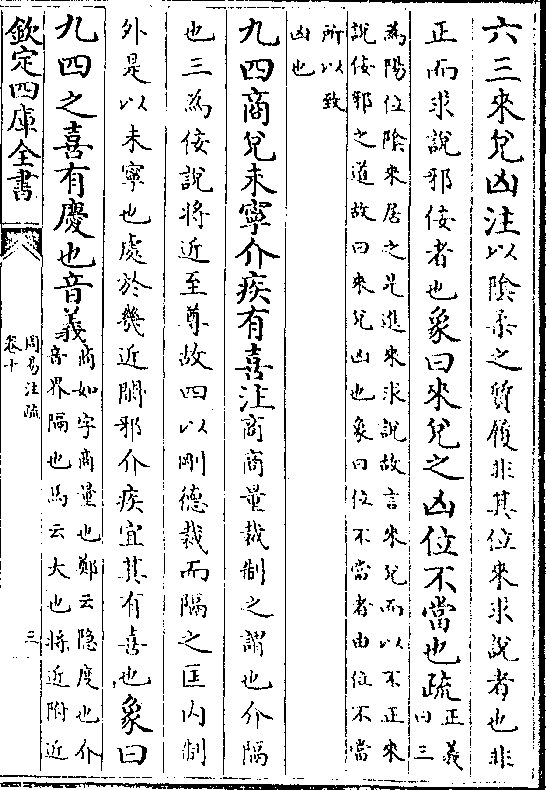 六三來兌凶注以陰柔之質履非其位來求說者也非
正而求說邪佞者也象曰來兌之凶位不當也疏正義
曰三
為陽位陰來居之是進來求說故言來兌而以不正來
說佞邪之道故曰來兌凶也象曰位不當者由位不當
所以致
凶也
九四商兌未寧介疾有喜注商商量裁制之謂也介隔
也三為佞說將近至尊故四以剛德裁而隔之匡內制
外是以未寧也處於幾近閑邪介疾宜其有喜也象曰
九四之喜有慶也音義商如字商量也鄭云隐度也介
音界隔也馬云大也將近附近
欽定四庫全書
周易注疏
卷十
三